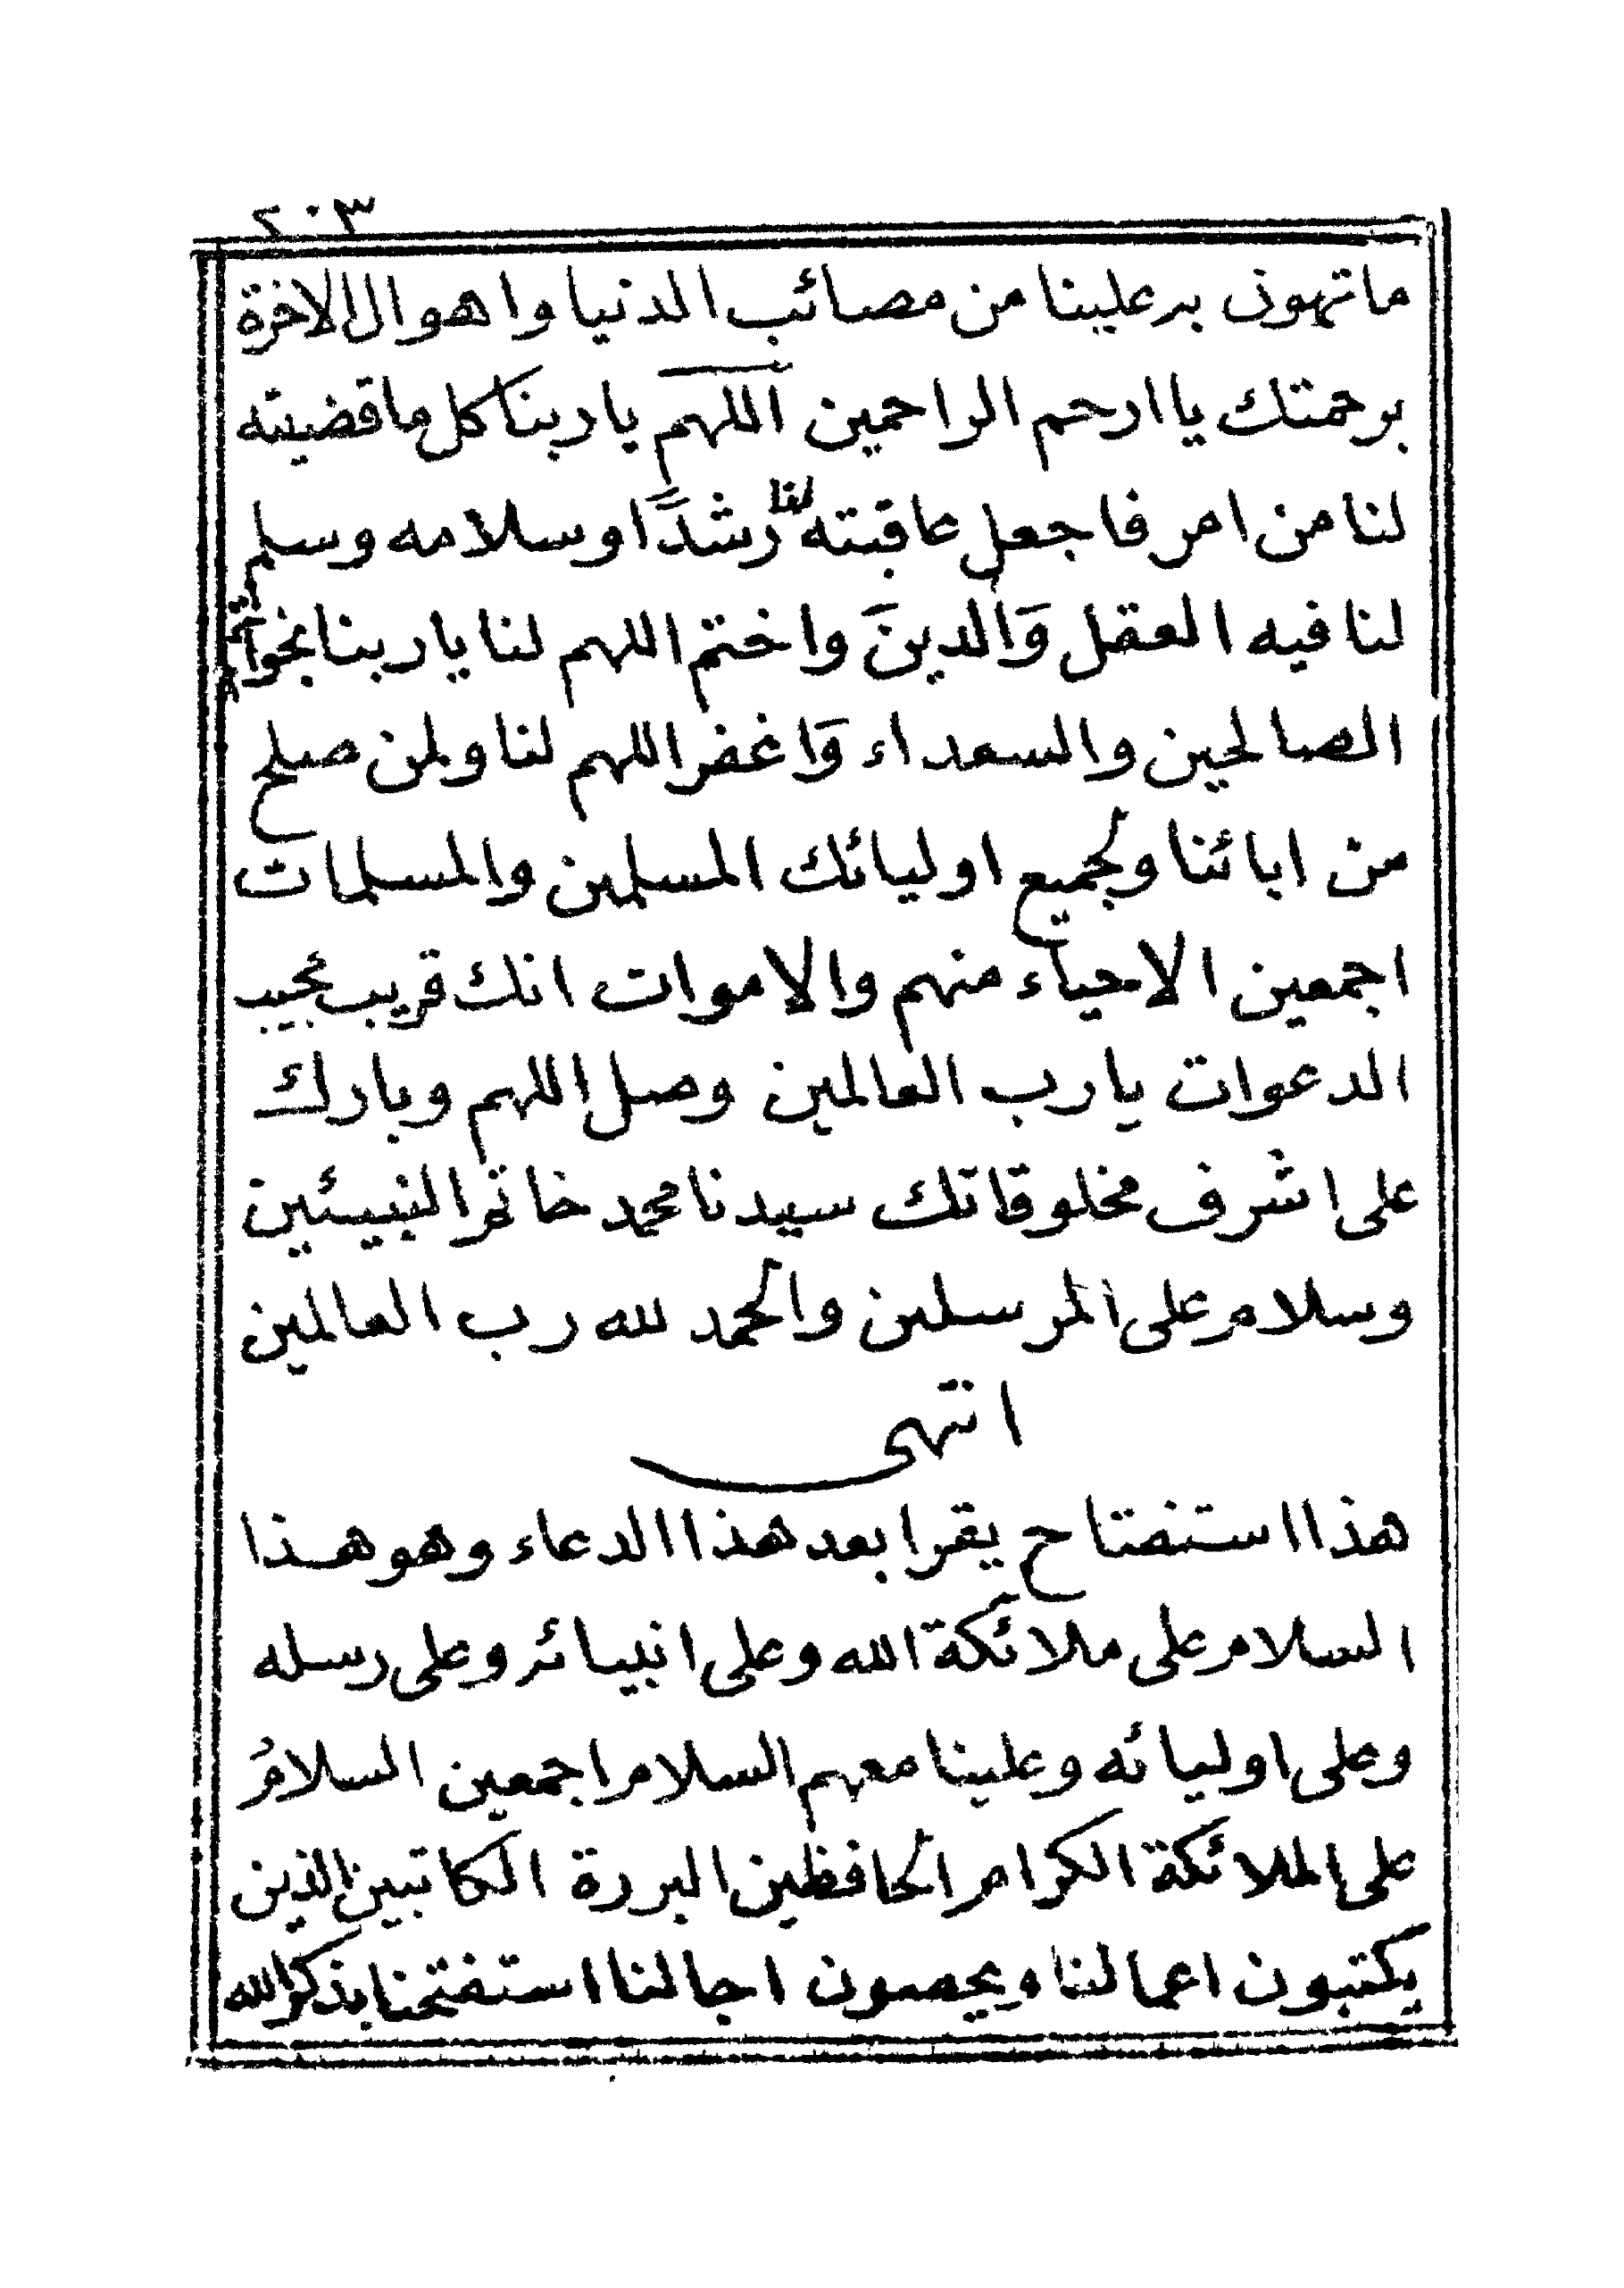 ٢٠٣
ما تهون به علينا من مصائب الدنيا واهوال الاخرة
برحمتك يا ارحم الراحمين اللهم يا ربنا كل ما قضيته
لنا من امر فاجعل عاقبته لنا رشدًا وسلامه وسلم
لنا فيه العقل وَالدينَ واختم اللهم لنا يا ربنا بخواتم
الصالحين والسعداء وَاغفر اللهم لنا ولمن صلح
من ابائنا ولجميع اوليائك المسلمين والمسلمات
اجمعين الاحياء منهم والاموات انك قريب مجيب
الدعوات يا رب العالمين وصل اللهم وبارك
على اشرف مخلوقاتك سيدنا محمد خاتم النبيئين
وسلام على المرسلين والحمد لله رب العالمين
انتهى
هذا استفتاح يقرا بعد هذا الدعاء وهو هذا
السلام على ملائكة الله وعلى انبيائه وعلى رسله
وعلى اوليائه وعلينا معهم السلام اجمعين السلامُ
على الملائكة الكرام الحافظين البررة الكاتبين الذين
يكتبون اعمالنا ويحصون اجالنا استفتحنا بذكر الله